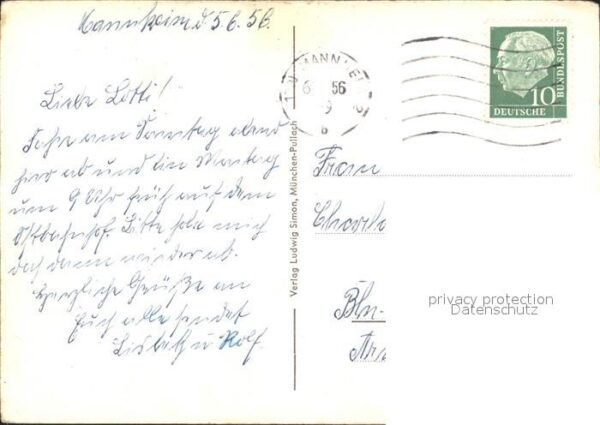 Mannheim, d. 5.6.56.
Liebe Lotti!
Fahre am Sonntag abend
hier ab und bin Montag
um 9 Uhr früh auf dem
Ostbahnhof. Bitte hole mich
doch dann wieder ab.
Herzliche Grüße an
Euch alle sendet
Lisbeth u. Rolf.
Verlag Ludwig Simon, München-Pullach
MANNHEIM
56
9
b
10
DEUTSCHE
BUNDESPOST
Frau
Bln.-
privacy protection
Datenschutz